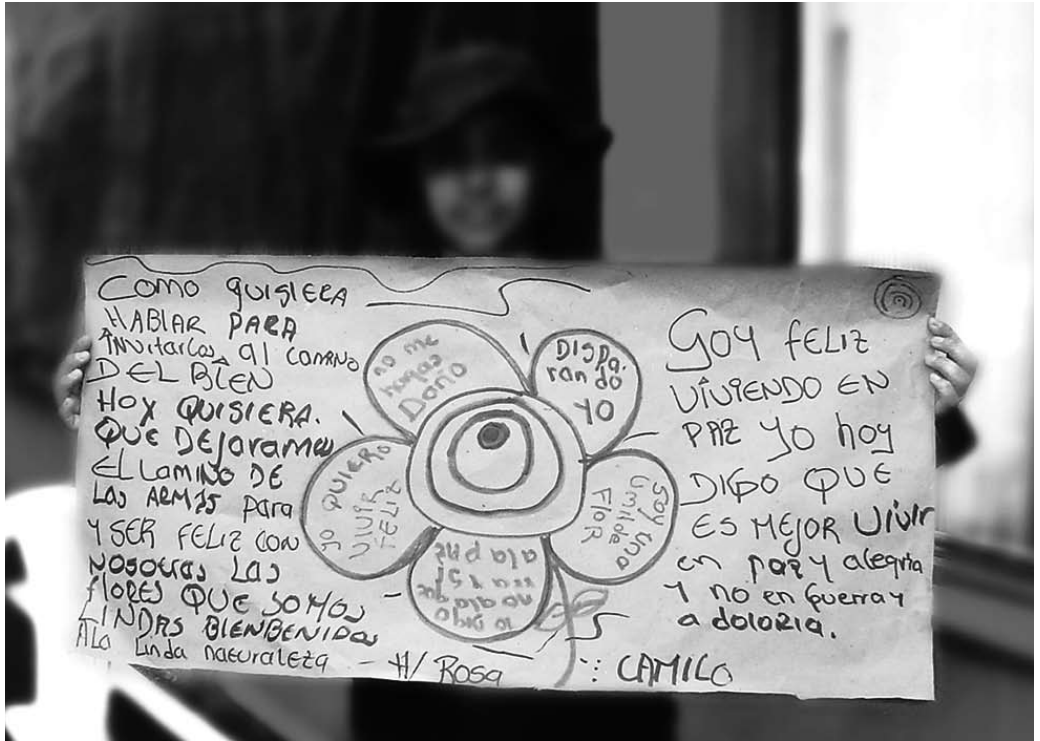 COMO QUISIERA
HABLAR PARA
INVITARLOS al COMINO
DEL BIEN
HOY QUISIERA.
QUE DEJARAMOS
EL CAMINO DE
LAS ARMAS PARA
Y SER FELIZ CON
NOSOTRAS LAS
flORES QUE SOMOS
LINDAS BIENBENIDOS
ALA Linda naturaleza - H/ ROSA
no me
hagas
DAÑO
DISPA.
ran do
YO
SOY UNA
UMILDE
FLOR
lo DIGO
no ala gue
rra y SI
a la paz
yo QUIERO
VIVIR
FELIZ
SOY FELIZ
VIVIENDO EN
PAZ Yo hoy
DIGO QUE
ES MEJOR VIVIR
en paz y alegria
y no en guerra y
a doloria.
CAMILO